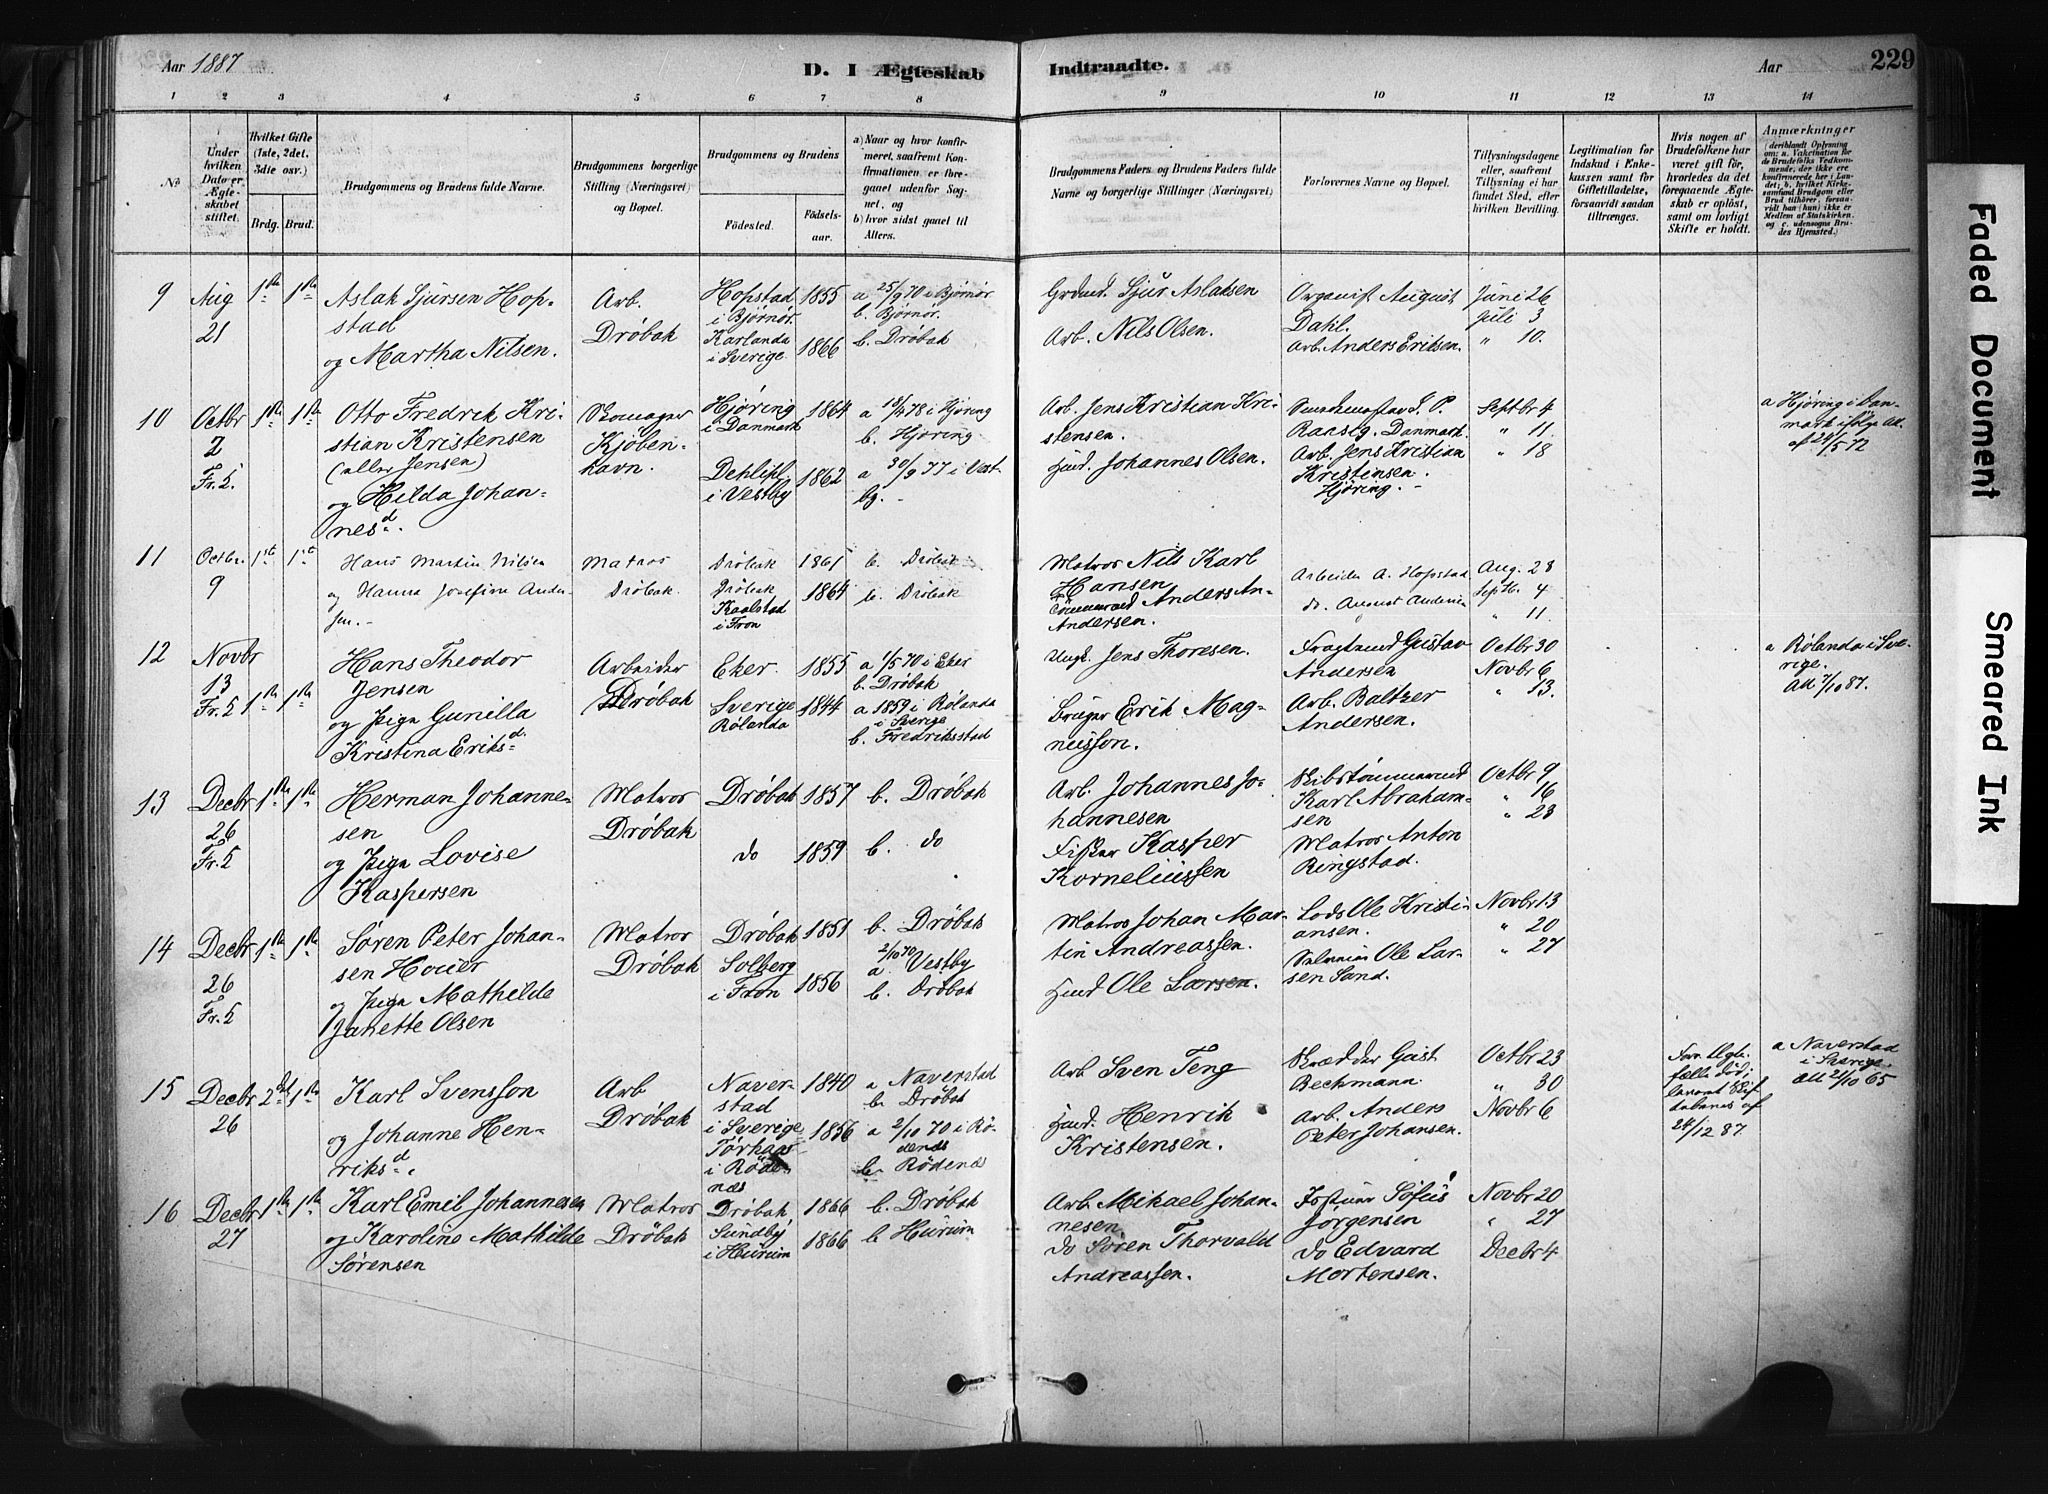 Aar 1887
D. I Ægteskab Indtraadte.
Aar
229
1 2 3 4 5 6 7 8 9 10 11 12 13 14
No
Under hvilken Dato er Ægteskabet stiftet.
Hvilket Gifte (1ste, 2det, 3die osv.)
Brdg. Brud.
Brudgommens og Brudens fulde Navne.
Brudgommens borgerlige Stilling (Næringsvei) og Bopæl.
Brudgommens og Brudens
Fødested.
Fødselsaar.
a) Naar og hvor konfirmeret, saafremt Konfirmationen er foregaaet udenfor Sognet, og
b) hvor sidst gaaet til Alters.
Brudgommens Faders og Brudens Faders fulde Navne og borgerlige Stillinger (Næringsvei)
Forlovernes Navne og Bopæl.
Tillysningsdagene eller, saafremt Tillysning ei har fundet Sted, efter hvilken Bevilling.
Legitimation for Indskud i Enkekassen samt for Giftetilladelse, forsaavidt saadan tiltrænges.
Hvis nogen af Brudefolkene har været gift før, hvorledes da det foregaaende Ægteskab er opløst, samt om lovligt Skifte er holdt.
Anmærkninger
(deriblandt Oplysning om: a. Vakcination for de Brudefolks Vedkommende, der ikke ere konfirmerede her i Landet; b. hvilket Kirkesamfund Brudgom eller Brud tilhører, forsaavidt han (hun) ikke er Medlem af Statskirken, og c. udensogns Brudes Hjemsted.)
9
Aug 21
1ste 1ste
Aslak Sjursen Hopstad
og Martha Nilsen.
Arb. Drøbak
Hopstad i Bjørnør. 1855
Karlanda i Sverige 1866
a 25/9 70 i Bjørnør
b. Bjørnør.
b. Drøbak
Grdmd. Sjur Aslaksen
Arb. Nils Olsen.
Organist August Dahl.
Arb. Anders Eriksen.
Juni 26
Juli 3
" 10.
10
Octbr 2
Fr. 5.
1ste 1ste
Otto Fredrik Kristian Kristensen
(eller Jensen)
og Hilda Johannesd.
Skomager
Kjøbenhavn.
Hjøring i Danmark 1864
i Vestby 1862
i Hjøring
b. Hjøring.
a 30/9 77 i Vestby.
Arb. Jens Kristian Kristensen.
Husmd. Johannes Olsen.
Danmark.
Arb. Jens Kristian Kristensen. Hjøring.
Septbr 4
" 11
" 18
a Hjøring i Danmark ifølge Att. af 24/5 72
11
Octbr. 9
1ste 1ste
Hans Martin Nilsen
og Hanna Josefine Andersen.
Matros
Drøbak.
Drøbak 1861
Drøbak 1864
Kaalstad i Fron
b. Drøbak
b. Drøbak
Matros Nils Karl Hansen
Tømmermd Anders Andersen.
Arbeider A. Hopstad
do. August Andersen
Aug. 28
Septb. 4
" 11
12
Novbr 13
Fr. 5 1ste 1ste
Hans Theodor Jensen
og Pige Gunilla Kristina Eriksd.
Arbeider
Drøbak
Eker. 1855
Sverige Rølanda 1844
a 1/5 70 i Eker
b. Drøbak
a 1859 i Rølanda i Sverige
b. Fredriksstad
Ungk. Jens Thoresen.
Bruger Erik Magnusson.
Fragtmd Gustav Andersen
Arb. Baltzer Andersen.
Octbr 30
Novbr 6
" 13.
a Rølanda i Sverige.
Att 7/10 87.
13
Decbr 26
Fr. 5
1ste 1ste
Herman Johannesen
og Pige Lovise Kaspersen
Matros
Drøbak
Drøbak 1857
do 1859
b. Drøbak
b. do
Arb. Johannes Johannesen
Fisker Kasper Korneliussen
Skibstømmermd Karl Abrahamsen
Matros Anton Ringstad.
Octbr 9
" 16
" 23
14
Decbr 26
Fr. 5
1ste 1ste
Søren Peter Johansen Houer
og Pige Mathilde Janette Olsen
Matros
Drøbak
Drøbak 1851
Solberg i Fron 1856
b. Drøbak
a 2/10 70 Vestby
b. Drøbak
Matros Johan Martin Andreassen.
Husmd Ole Larsen.
Lods Ole Kristiansen.
Ole Larsen Sand.
Novbr 13
" 20
" 27
15
Decbr 26
2det 1ste
Karl Svensson
og Johanne Henriksd.
Arb
Drøbak
Naverstad i Sverige 1840
i Rødenæs 1856
a Naverstad
b. Drøbak
a 2/10 70 i Rødenæs
b. Rødenæs
Arb Sven Teng
Husmd. Henrik Kristensen.
Skrædder Gust Beckmann.
Arb. Anders Peter Johansen.
Octbr 23
" 30
Novbr 6
død;
24/12 87.
a Naverstad i Sverige
Att 21/10 65
16
Decbr 27
1ste 1ste
Karl Emil Johannesen
og Karoline Mathilde Sørensen
Matros
Drøbak
Drøbak 1866
Sundby i Hurum 1866
b. Drøbak
b Hurum
Arb. Mikael Johannesen
do Søren Thorvald Andreassen.
Sofus Jørgensen
do Edvard Mortensen.
Novbr 20
" 27
Decbr 4
Faded Document
Smeared Ink